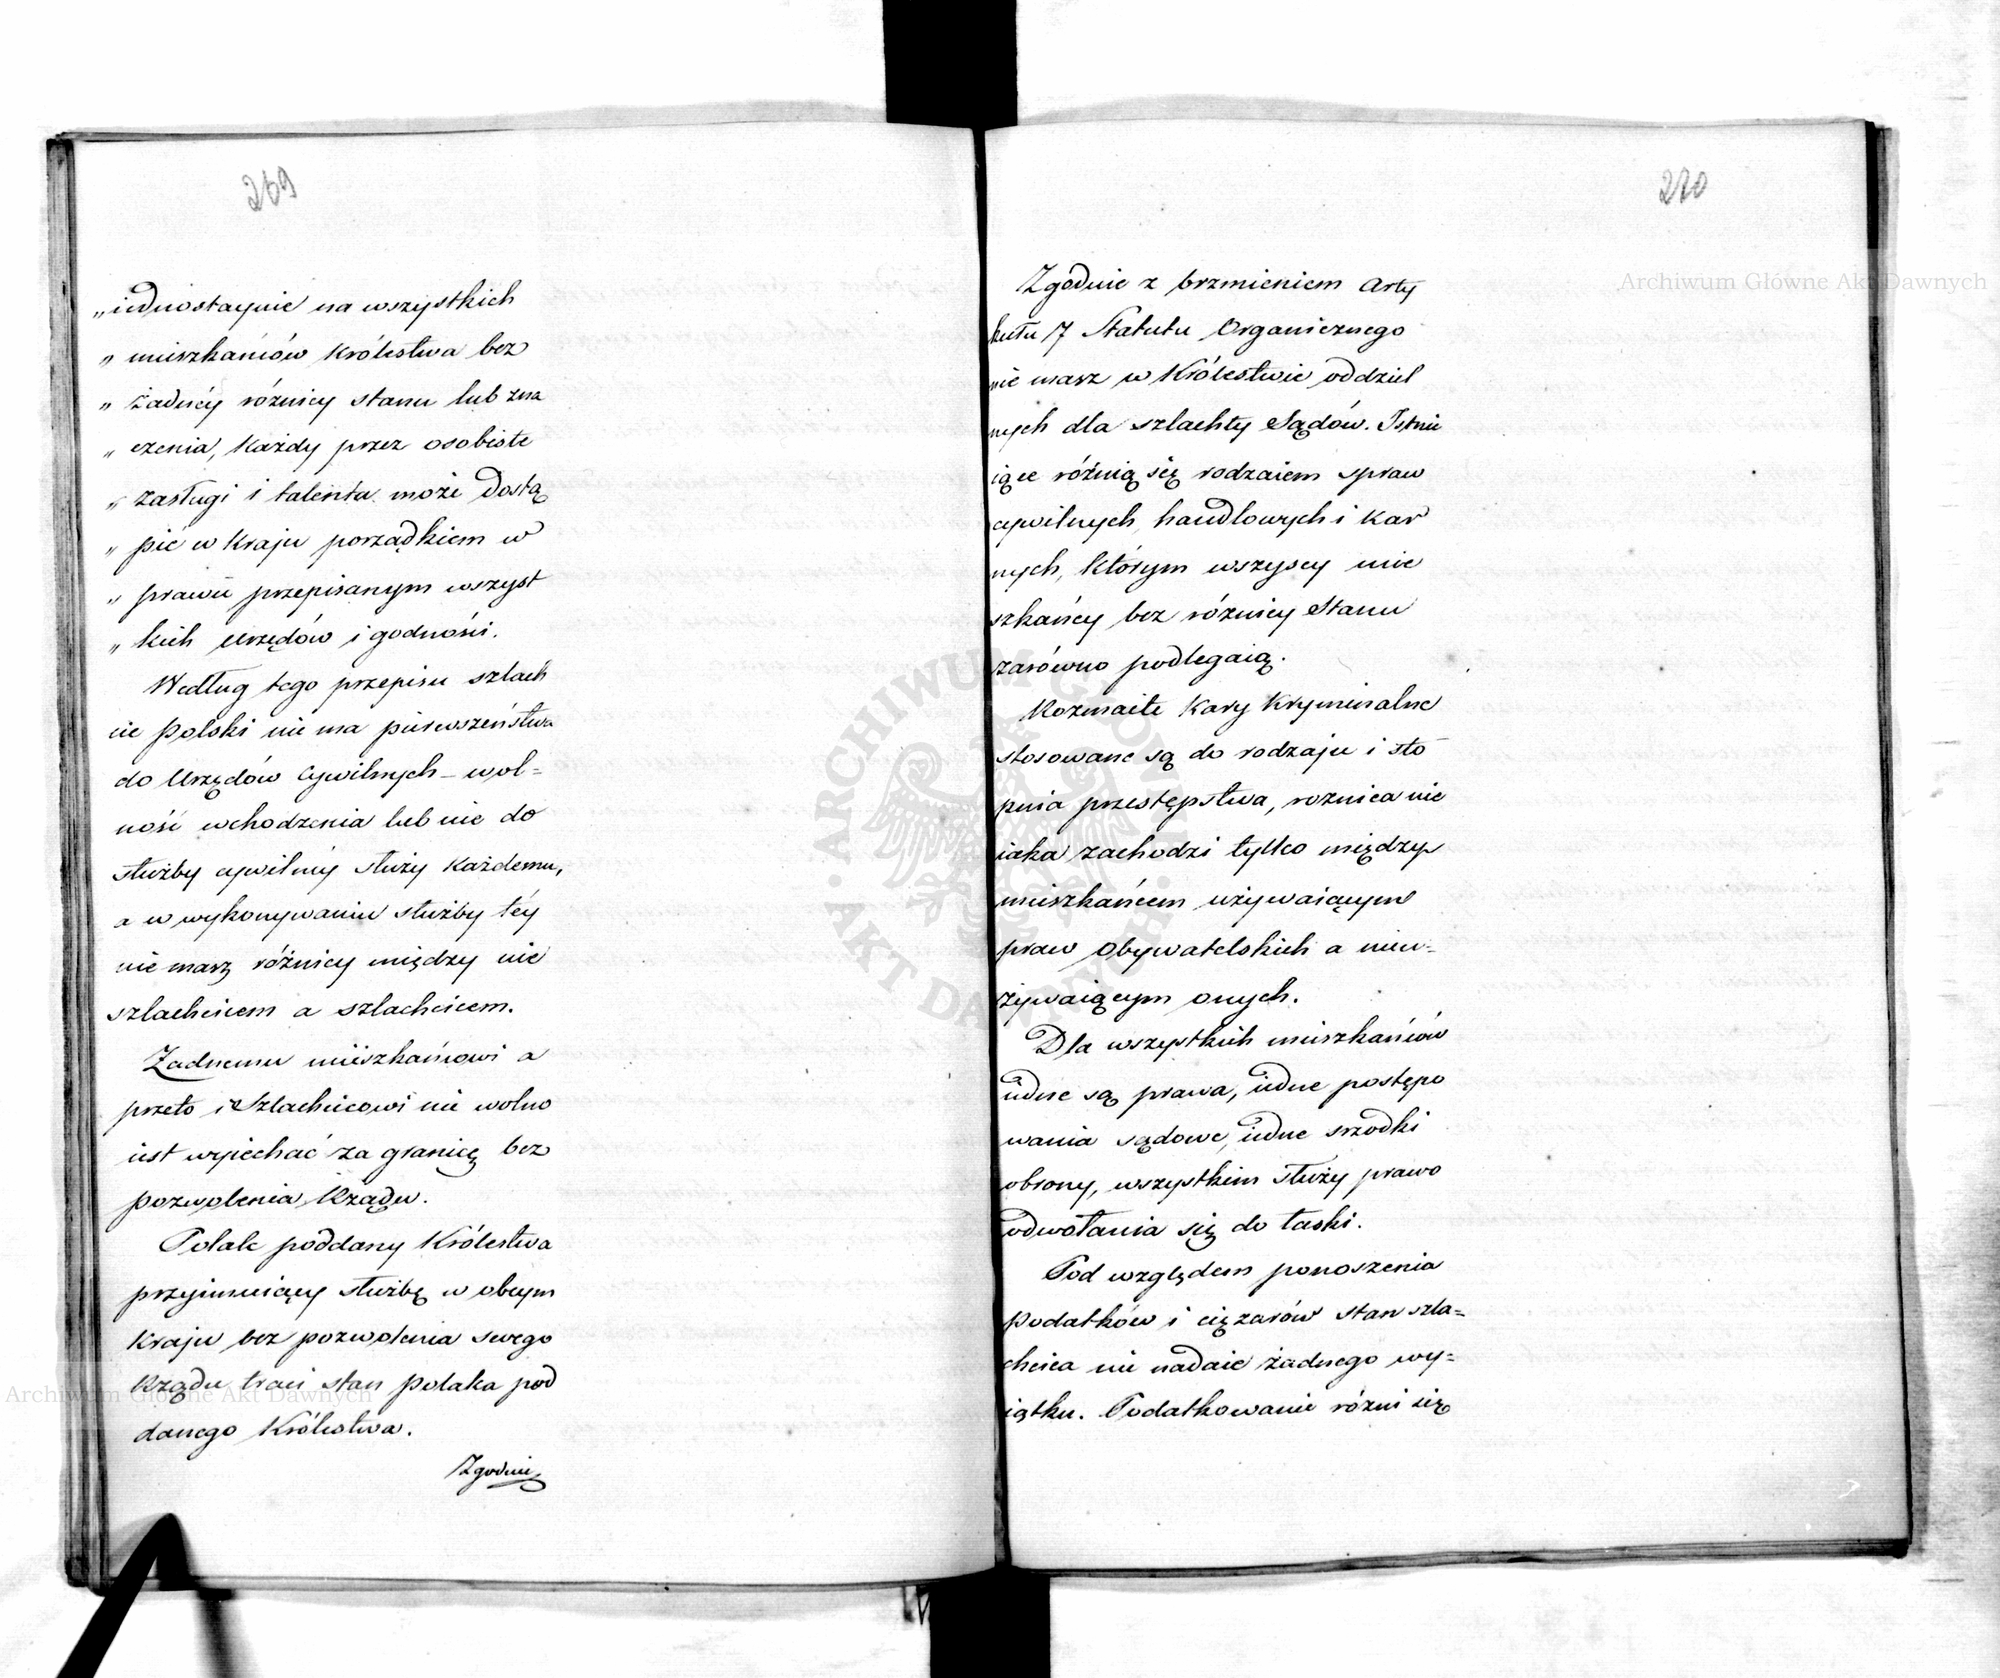 269
„ iednostaynie na wszystkich
„ mieszkańców Królestwa bez
„ żadnéy różnicy stanu lub zna
„ czenia, Każdy przez osobiste
„ zasługi i talenta może dostą
„ pić w Kraju porządkiem w
„ prawie przepisanym wszyst
„ kich Urzędów i godności.
Według tego przepisu szlach
cic Polski nie ma pierwszeństwa
do Urzędów Cywilnych – wol=
ność wchodzenia lub nie do
służby cywilnéy służy Każdemu,
a w wykonywaniu służby téy
nie masz różnicy między nie
szlachcicem a szlachcicem.
Żadnemu mieszkańcowi a
przeto i Szlachcicowi nie wolno
iest wyiechać za granicę bez
pozwolenia Rządu.
Polak poddany Królestwa
przyimuiący służbę w obcym
Kraju bez pozwolenia swego
Rządu traci stan Polaka pod
danego Królestwa.
Zgodnie
270
Zgodnie z brzmieniem Arty
kułu 7 Statutu Organicznego
nie masz w Królestwie oddziel
nych dla szlachty Sądów. Istnie
iące różnią się rodzaiem spraw
cywilnych, handlowych i Kar
nych, którym wszyscy mie
szkańcy bez różnicy Stanu
zarówno podlegaią.
Rozmaite Kary Kryminalne
stosowane są do rodzaju i sto
pnia przestępstwa, roznica nie
iaka zachodzi tylko między
mieszkańcem używaiącym
praw Obywatelskich a nieu=
żywaiącym onych.
Dla wszystkich mieszkańców
iedne są prawa, iedne postępo
wania sądowe, iedne srzodki
obrony, wszystkim służy prawo
odwołania się do łaski.
Pod względem ponoszenia
podatków i ciężarów stan szla=
chcica nie nadaie żadnego wy=
iątku. Podatkowanie różni się
Archiwum Główne Akt Dawnych
Archiwum Główne Akt Dawnych
ARCHIWUM GŁÓWNE · AKT DAWNYCH ·